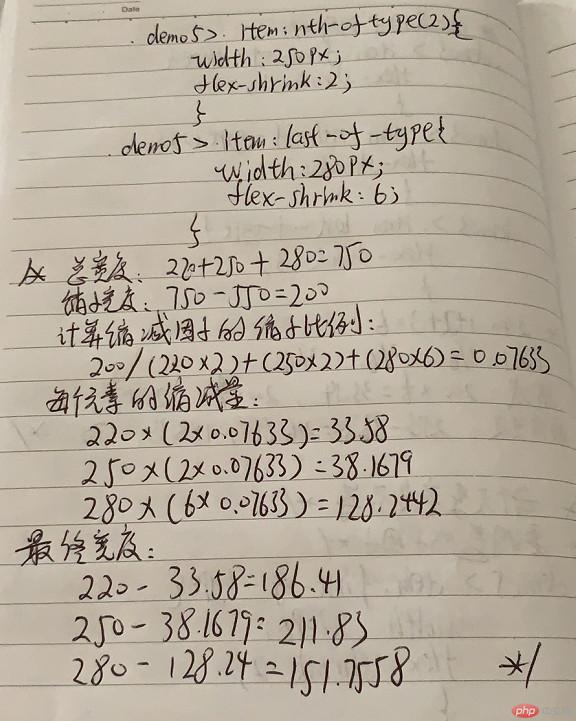 Date
.demo5>.item:nth-of-type(2){
width:250px;
flex-shrink:2;
}
.demo5>.item:last-of-type{
width:280px;
flex-shrink:6;
}
/* 总宽度: 220+250+280=750
缩小宽度: 750-550=200
计算缩减因子的缩小比例:
200/(220×2)+(250×2)+(280×6)=0.07633
每个元素的缩减量:
220×(2×0.07633)=33.58
250×(2×0.07633)=38.1679
280×(6×0.07633)=128.2442
最终宽度:
220-33.58=186.41
250-38.1679=211.83
280-128.24=151.7558 */
php